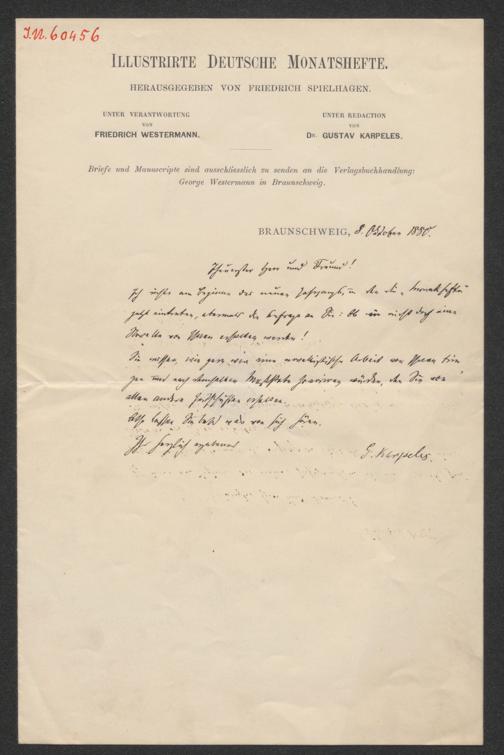 I.N. 60456
ILLUSTRIRTE DEUTSCHE MONATSHEFTE.
HERAUSGEGEBEN VON FRIEDRICH SPIELHAGEN.
UNTER VERANTWORTUNG
VON
FRIEDRICH WESTERMANN.
UNTER REDACTION
VON
DR. GUSTAV KARPELES.
Briefe und Manuscripte sind ausschliesslich zu senden an die Verlagsbuchhandlung:
George Westermann in Braunschweig.
BRAUNSCHWEIG, 8. Oktober 1880.
Theuerster Herr und Freund!
Ich richte am Beginne des neuen Jahrgangs, in den die „Monatshefte"
jetzt eintreten, abermals die Anfrage an Sie: Ob wir nicht doch eine
Novelle von Ihnen erhalten werden!
Sie wissen, wie gern wir eine novellistische Arbeit von Ihnen brin
gen und nach demselben Maßstabe honoriren würden, den Sie von
allen anderen Zeitschriften erhalten.
Bitte lassen Sie bald was von sich hören.
Ihr herzlich ergebener
G. Karpeles.